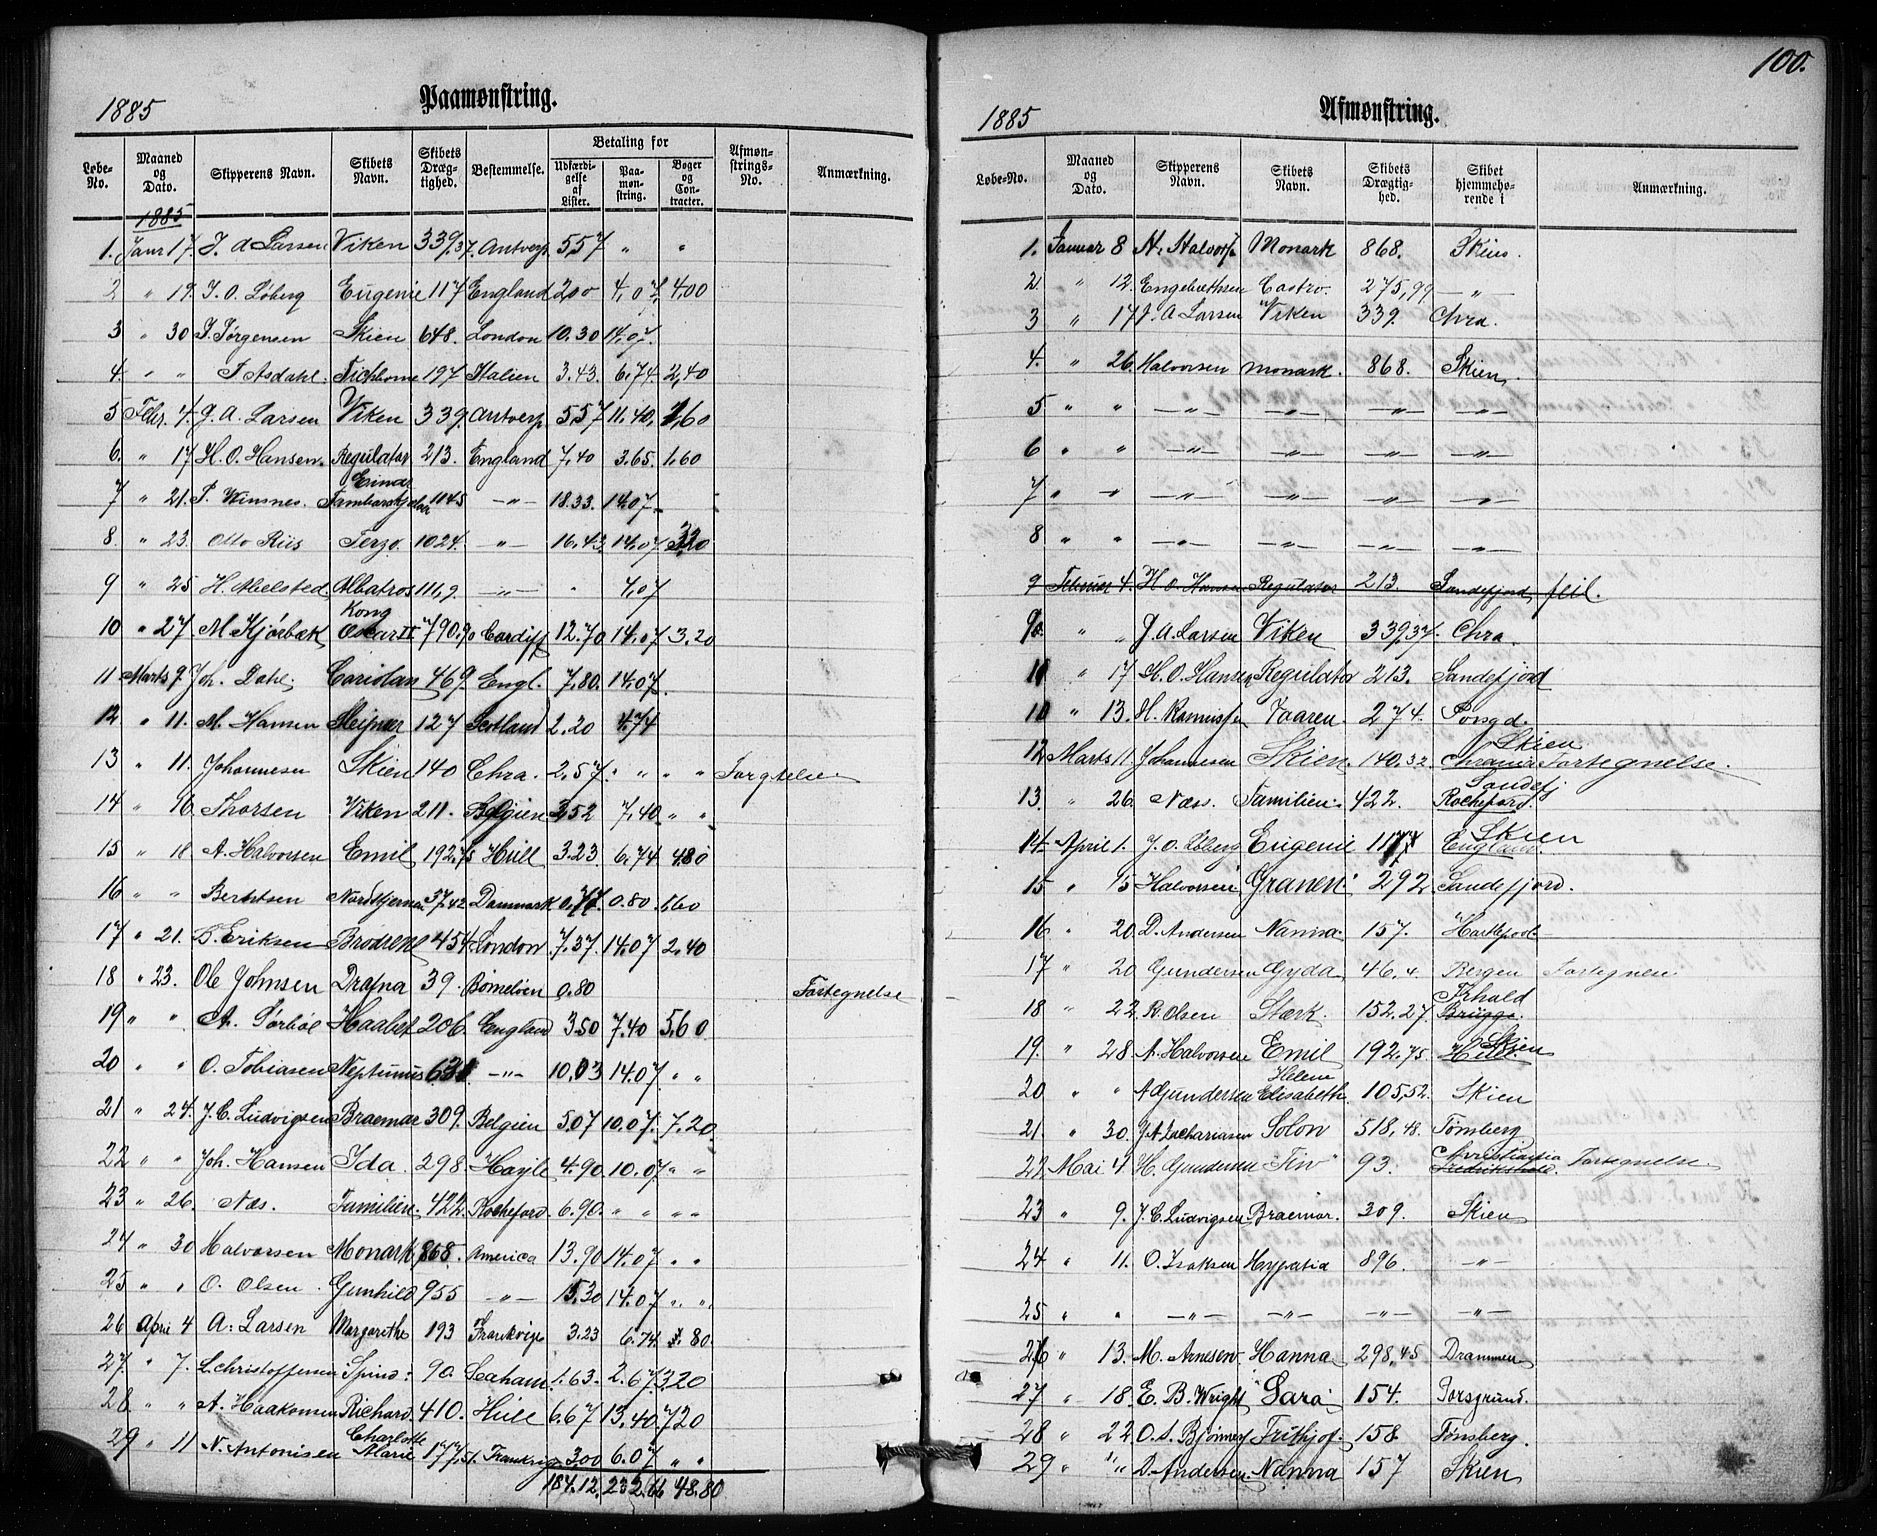 100.
1885 Paamønstring.
Løbe-No. Maaned og Dato. Skipperens Navn. Skibets Navn. Skibets Dræg-tighed. Bestemmelse. Betaling for Udfærdi-gelse af Lister. Paa-møn-string. Bøger og Con-tracter. Afmøn-strings-No. Anmærkning.
1885
1. Janr 17. J. A Larsen Viken 339,37. Antverp. 5,57 " "
2 " 19. J. O. Løberg Eugenie 117 England 2,00 4,07, 4,00
3 " 30 P. Jørgensen Skien 648. London 10.30 14,07.
4. " " P Asdahl. Tichborne 197 Italien 3.43. 6,74. 2,40
5 Febr. 4. J. A. Larsen Viken 339. Antverp 5,57 11,40, 1,60
6. " 17 H. O. Hansen. Regulator 213. England 7,40 3.65. 1,60
7 " 21. P. Winsnes. Einar Tambarskjelver 1045 —"— 18.33. 14,07.
8. " 23. Otto Riis Terzo. 1024. —"— 16,43 14,07 3,20
9 " 25 H. Abelsted. Albatros 111,9. —"— " 4,07
10 " 27. M. Kjørbæk Kong Oscar II. 790,90 Cardiff 12.70 14,07 3,20
11 Marts 9. Joh. Dahl. Coriolan 469. Engl. 7,80. 14,07.
12 " 11. M. Hansen Sleipner 127 Scotland 2.20 4,74
13 " 11. Johannesen Skien 140 Chra. 2,57. " " " " Forgtelse
14 " 16. Thorsen Viken 211. Belgien 3,52 7,40 " "
15 " 18 A. Halvorsen Emil 192,75 Hull 3.23 6,74 4,80
16 " " Berntsen Nordstjernen 37,42 Danmark 0,77. 0.80. 1,60
17 " 21. B. Eriksen Brødrene 454 London 7,37. 14,07 2,40
18 " 23. Ole Johnsen Drafna 39. Bømeløen 0.80 Fortegnelse
19 " " A. Sørbøl Haabet 206. England 3,50 7.40 5,60
20 " " O. Tobiasen Neptunus 631. —"— 10,03 14.07. " "
21 " 24. J. C. Ludvigsen Braemar 309. Belgien 5,07 10.07. 7.20
22 " " Joh. Hansen Ida. 298. Hayle 4.90. 10.07. " "
23 " 26. Næs. Familien. 422. Rocheford. 6.90. " " " "
24 " 30 Halvorsen Monark 868. America 13.90 14.07. " "
25 " " O. Olsen. Gunhild 955 —"— 15,30 14.07 " "
26 April 4 A. Larsen Margarethe 193 Frankrige 3.23 6.74. 80.
27. " 7. L. Christoffersen Spind. 90. Seaham. 1.63. 2.67. 3,20
28 " " A. Haakonsen Richard. 410. Hull 6.67 13,40. 7,20
29 " 11 N. Antonisen Charlotte Marie 177,51. Frankrig 3,00 6.07 " "
184.12. 232,66 48.80
1885 Afmønstring.
Løbe-No. Maaned og Dato. Skipperens Navn. Skibets Navn. Skibets Drægtig-hed. Skibet hjemmehø-rende i Anmærkning.
1. Januar 8 A. Halvors. Monark 868. Skien.
2. " 12. Engebrethsen Castro. 275,99 —"—
3 " 17 J. A Larsen Viken 339. Chra.
4. " 26. Halvorsen Monark. 868. Skien.
5 " " —"— —"— —"— —"—
6 " " —"— —"— —"— —"—
7 " " —"— —"— —"— —"—
8 " " —"— —"— —"— —"—
9 Februar 4. H. O. Hansen Regulator 213. Sandefjord, feil.
9. " " J. A. Larsen Viken 339,37. Chra.
10 " 17 H. O. Hansen Regulator 213. Sandefjord
" 13. H. Rasmussen Vaaren. 274. Porsgd.
12 Marts 11. Johannesen Skien 140,32. Skien Fortegnelse.
13. " 26. Næss. Familien. 422. Sandefj Rocheford.
14. April 1. J. O. Løberg Eugenie 117 Skien England.
15 " 15 Halvorsen Granen. 292 Sandefjord.
16 " 20 D. Andersen Nanna. 157. Hartepool
17 " 20 Gundersen Gyda. 46,4. Bergen Fortegnelse
18 " 22 R. Olsen Stærk. 152.27. Frhald Brügge.
19. " 28. A. Halvorsen Emil 192.75. Skien Hull.
20 " " A Gundersen Helene Elisabeth. 105,52. Skien
21. " 30. J. A. Zachariasen Solon 518,48. Tønsberg
22. Mai 4. H. Gundersen "Fin" 93. Christiania Fredrikshald. Fortegnelse
23 " 9. J. C. Ludvigsen. Braemar. 309. Skien
24 " 11. O. Isaksen Hypatia 896. —"—
25 " " —"— —"— —"— —"—
26 " 13. M. Arnesen. Hanna 298,45 Drammen
27 " 18. E. B. Wright "Sara" 154. Porsgrund.
28 " 22 O. A. Bjønnes Frithjof. 158. Tønsberg.
29 " " D. Andersen Nanna 157 Skien